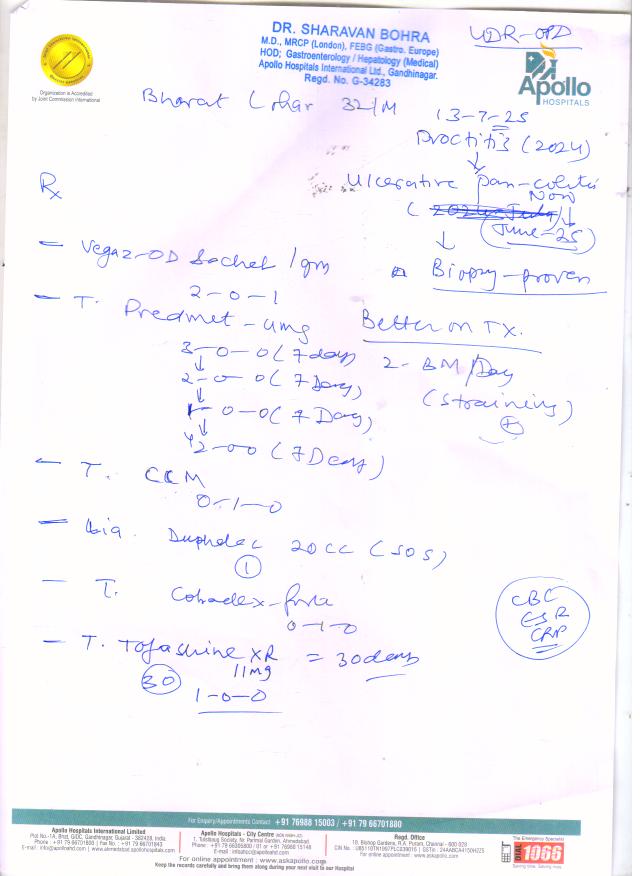 DR. SHARAVAN BOHRA
M.D., MRCP (London), FEBG (Gastro. Europe)
HOD; Gastroenterology / Hepatology (Medical)
Apollo Hospitals International Ltd., Gandhinagar.
Regd. No. G-34283
UDR-OPD
Apollo
HOSPITALS
Organization is Accredited
by Joint Commission International
Bharat Lohar 32/M
13-7-25
Proctitis (2024)
↓
Ulcerative pan-colitis
Now
(June-25)
↓
Biopsy-proven
Rx
- Vegaz-OD Sachet 1gm
2-0-1
- T. Predmet-4mg
3-0-0 (7 days)
↓
2-0-0 (7 Days)
↓
1-0-0 (7 Days)
↓
1/2-0-0 (7 Days)
Better on Tx.
2-BM/Day
(Straining)
+
- T. CCM
0-1-0
- Liq. Duphalac 20cc (SOS)
1
- T. Cobadex-forte
0-1-0
- T. Tofashine XR = 30 days
11mg
30
1-0-0
CBC
ESR
CRP
For Enquiry/Appointments Contact +91 76988 15003 / +91 79 66701880
Apollo Hospitals International Limited
Plot No.-1A, Bhat, GIDC, Gandhinagar, Gujarat - 382428, India
Phone : +91 79 66701800 | Fax No. : +91 79 66701843
E-mail : info@apolloahd.com | www.ahmedabad.apollohospitals.com
Apollo Hospitals - City Centre
1, Tulsibaug Society, Nr. Parimal Garden, Ahmedabad
Phone : +91 79 66305800 / 01 or +91 76960 15148
E-mail : infoahcc@apolloahd.com
Regd. Office
19, Bishop Gardens, R.A. Puram, Chennai - 600 028
For online appointment : www.askapollo.com
The Emergency Specialist
DIAL 1066
Saving time. Saving lives.
For online appointment : www.askapollo.com
Keep the records carefully and bring them along during your next visit to our Hospital